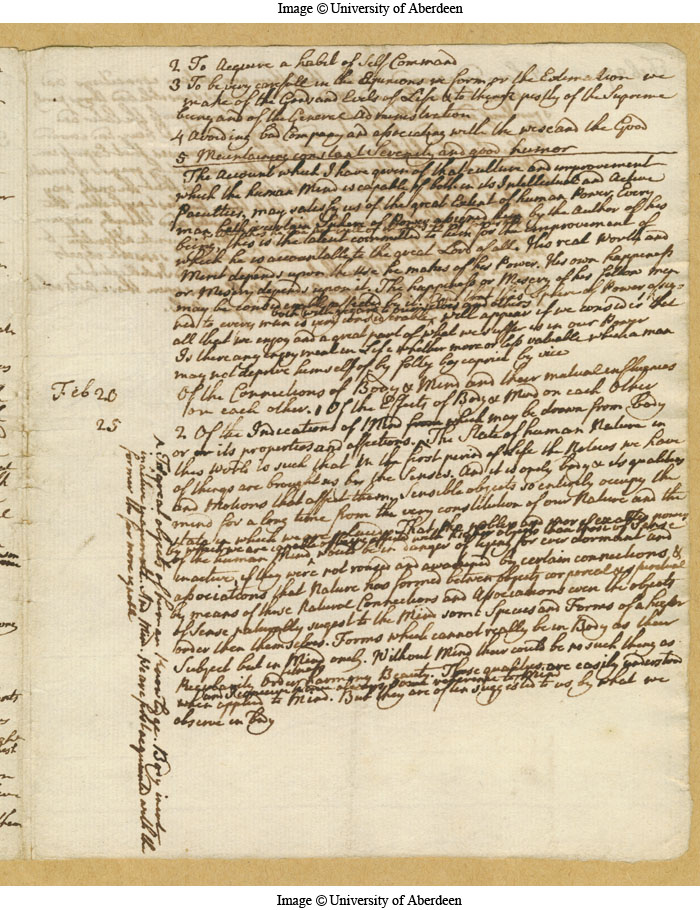 Image © University of Aberdeen
2 To Acquire a habit of Self Command
3 To be very carefull in the Opinions we form or the Estimation we
make of the Goods and Evils of Life & to think justly of the Supreme
being and of the General Administration
4 Avoiding bad Company and associating with the wise and the Good
5 Maintaining constant Serenity and good humor
The Account which I have given of that culture and improvement
which the human Mind is capable of both in its Intellectual and Active
Faculties, may satisfy us of the great Extent of human Power. Every
man hath a certain Sphere of Power assigned him by the Author of his
being, this is the talent committed to him for the improvement of
which he is accountable to the great Lord of all. His real Worth and
Merit depends upon the Use he makes of his Power. His own happiness
or Misery depends upon it. The happiness or Misery of his fellow men
may be considerably affected by it. Internal Power
both with regard to ourselves and others
ned to every man is very considerable will appear if we consider that
all that we enjoy and a great part of what we suffer is in our Power
Is there any enjoyment in Life whether more or less valuable which a man
may not deprive himself of by folly by caprice by vice
Feb 20
Of the Connections of Body & Mind and their mutual influences
on each other. 1 Of the Effects of Body & Mind on each Other
25
2 Of the Indications of Mind which may be drawn from Body
or its properties and affections. ^ The State of human Nature in
this World is such that in the first period of Life the Notices we have
of things are brought us by the Senses. And it is onely body & its qualities
and Motions that affect them, Sensible objects so entirely occupy the
mind for a long time from the very constitution of our Nature and the
state in which we are placed That the nobler and more exalted powers
by which we are capable of being affected with higher objects than those of Sense
of the human Mind would be in danger of lying for ever dormant and
inactive, if they were not roused and awakened by certain connections, &
associations that Nature has formed between objects corporeal & spiritual
by means of those Natural Connections and Associations even the objects
of Sense naturally suggest to the Mind some Species and Forms of a higher
order then themselves. Forms which cannot really be in Body as their
Subject but in Mind onely. Without Mind there could be no such thing as
Regularity Order harmony Beauty. These qualities are easily understood
when applied to Mind. But they are often suggested to us by what we
observe in Body
^ The great objects of human knowledge. Body inert
inactive inanimate. And Mind. We are first acquainted with the
former tho far more
Image © University of Aberdeen